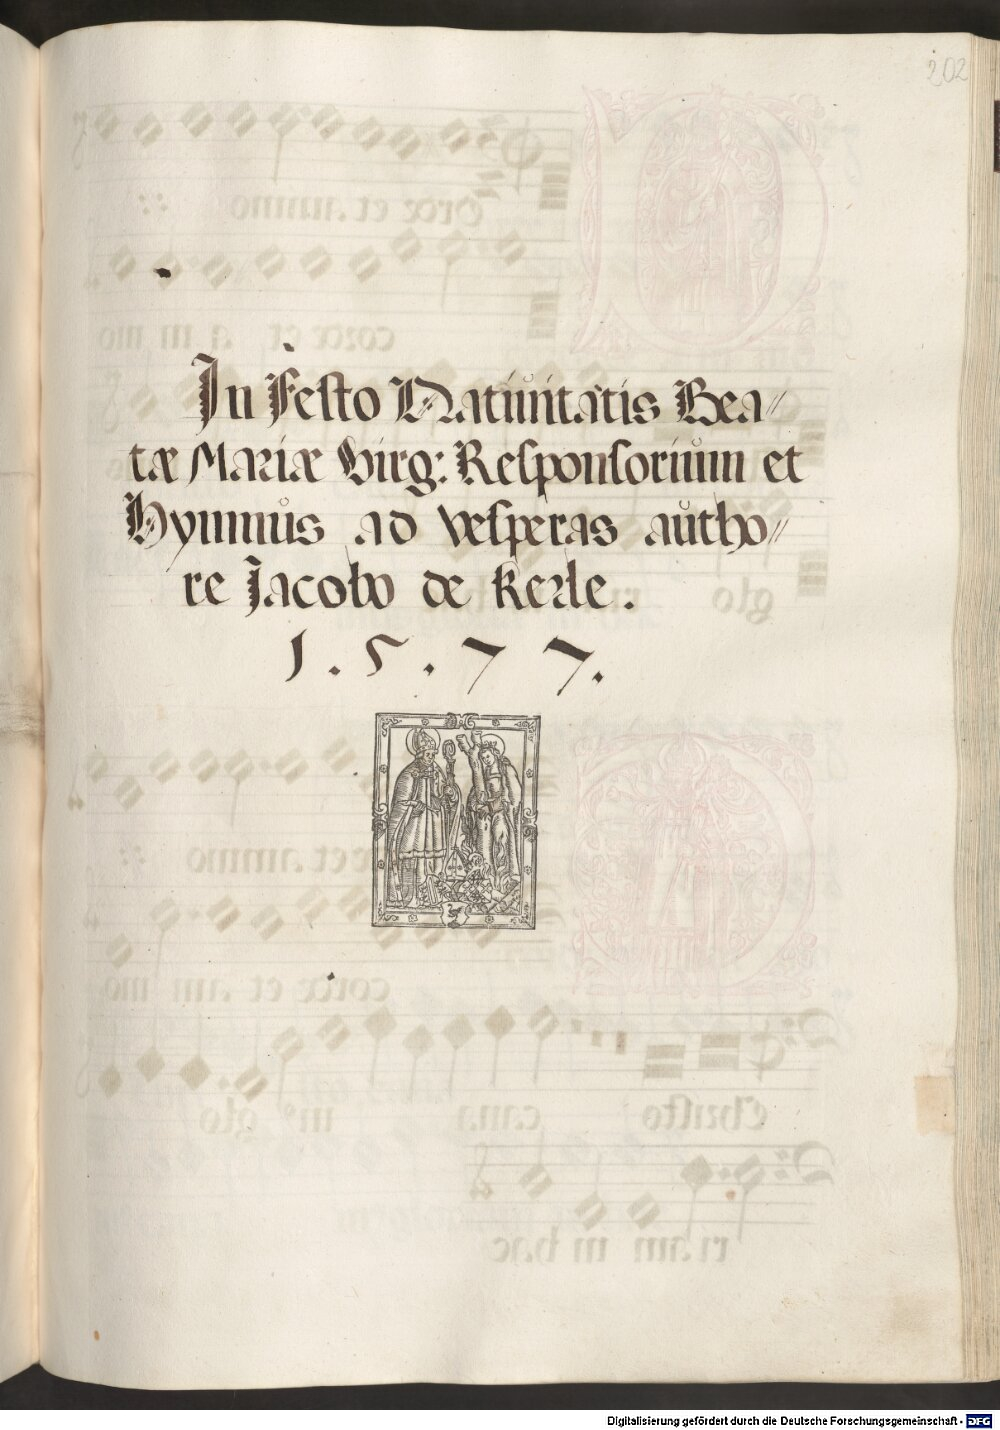 202
In Festo Natiuitatis Bea//
tæ Mariæ Virg: Responsorium et
Hymnus ad vesperas autho//
re Jacobo de Kerle.
1.5.77.
Digitalisierung gefördert durch die Deutsche Forschungsgemeinschaft - DFG